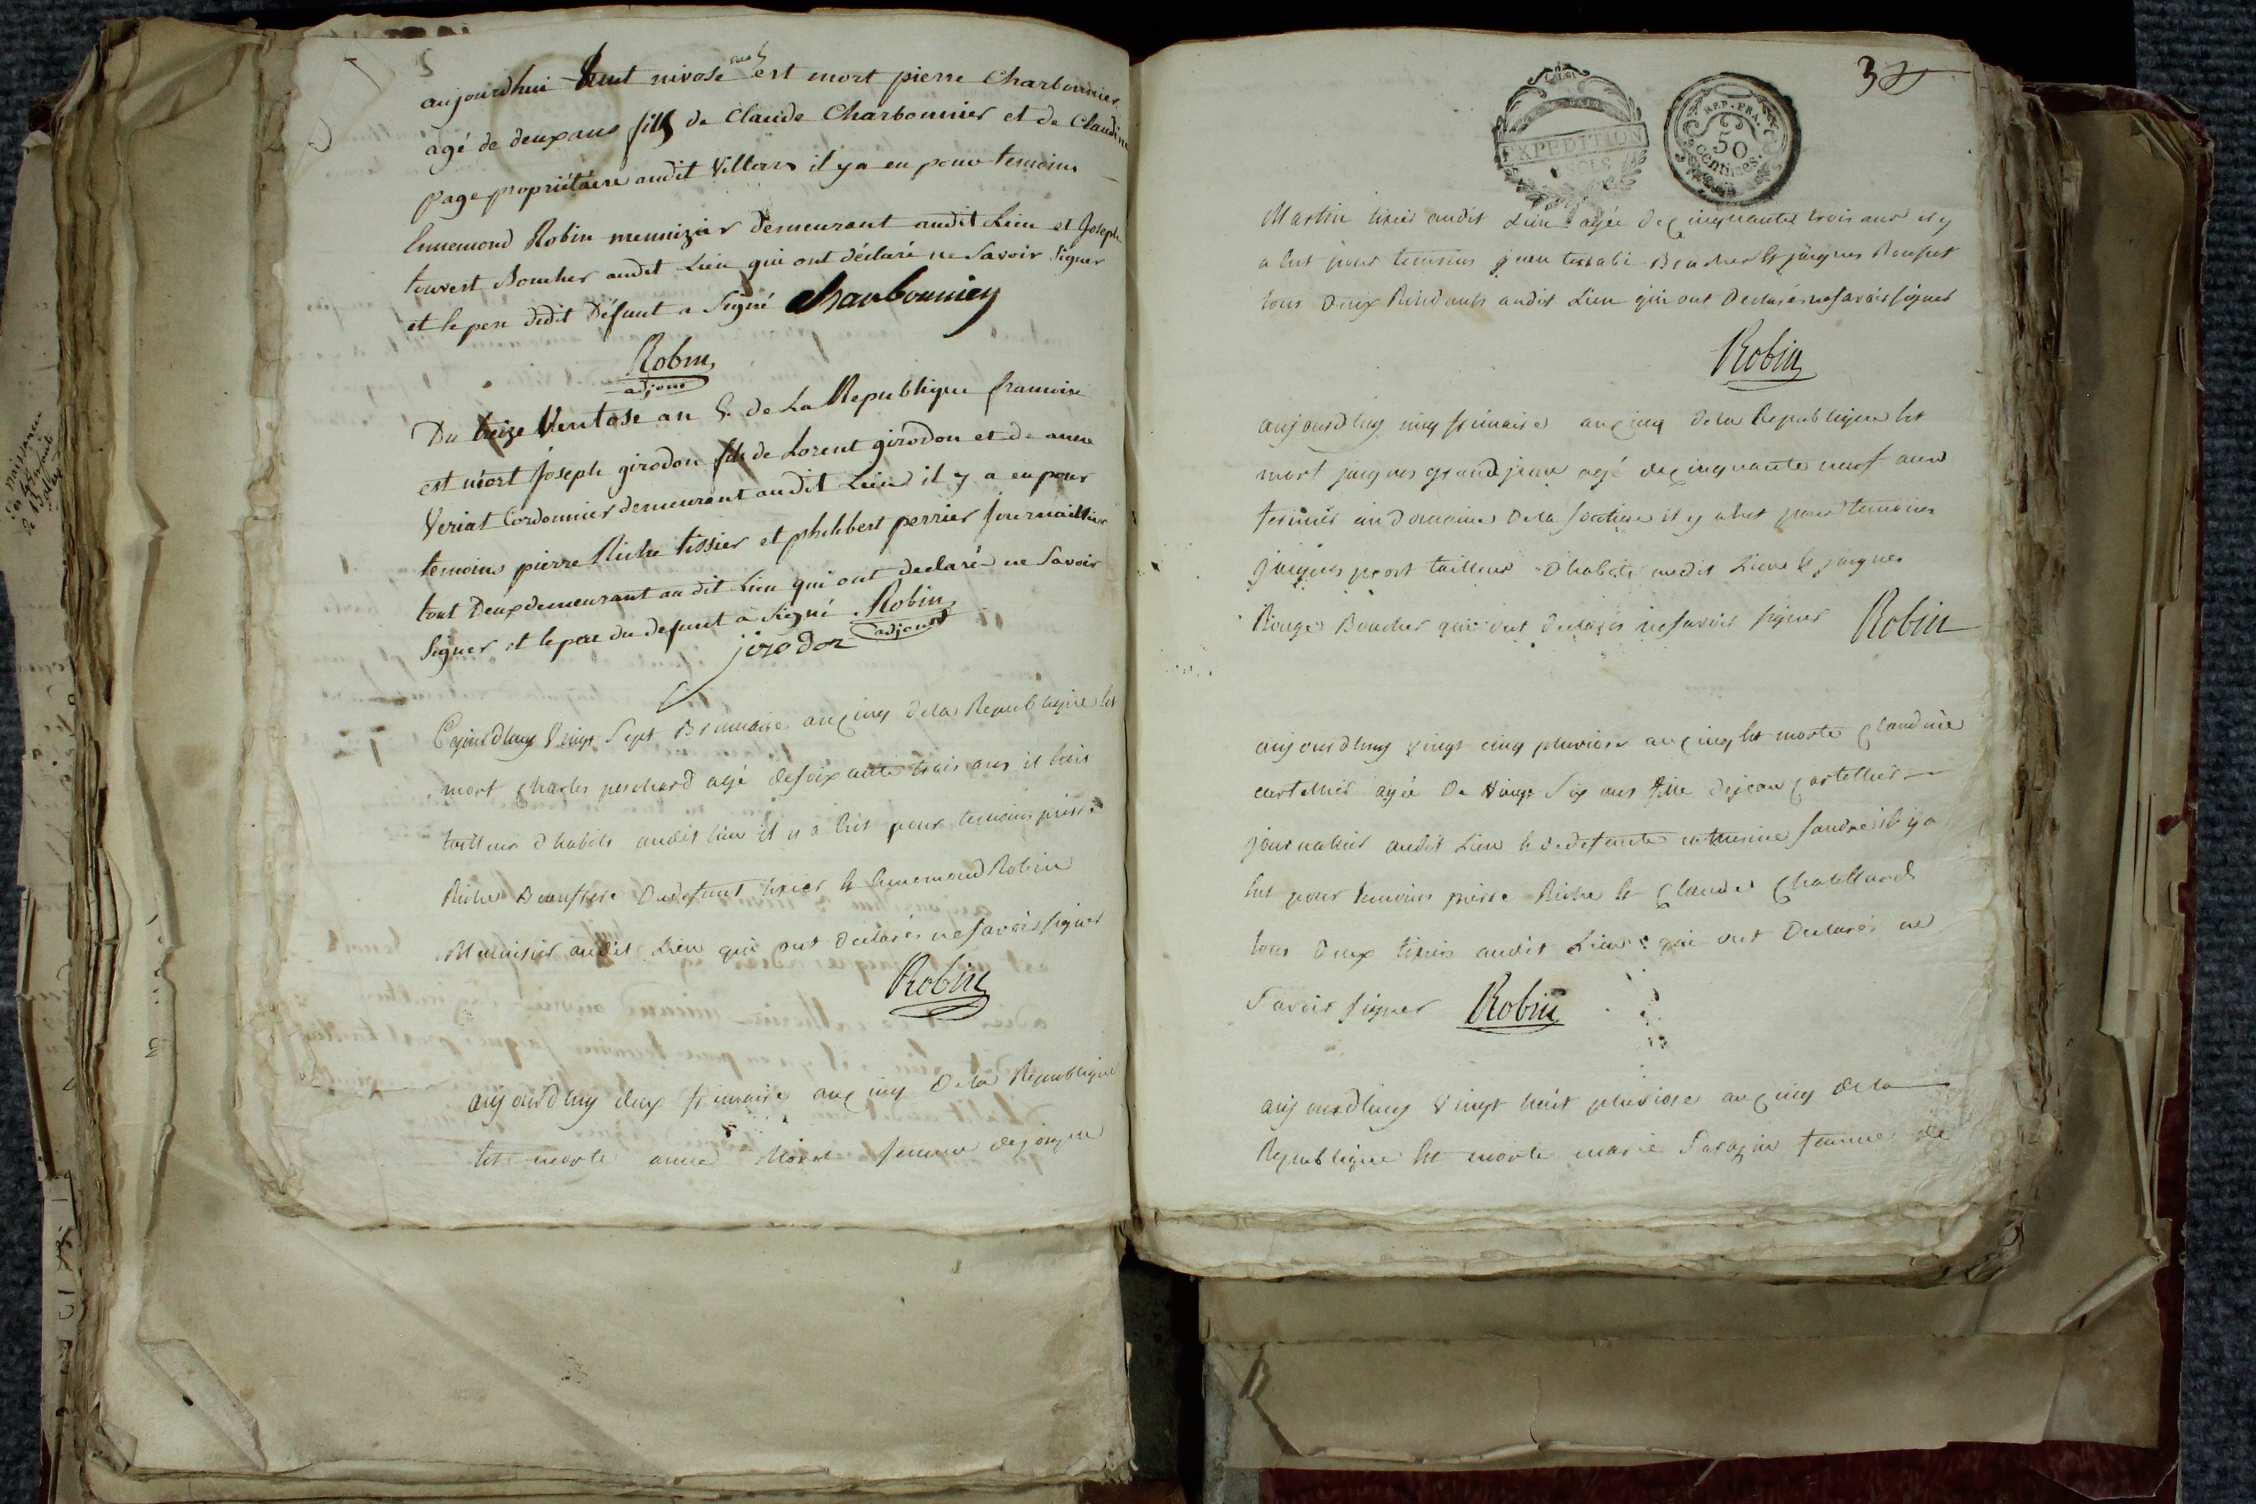 aujourdhui huit nivose an 5 est mort pierre Charbonnier
agé de deux ans fils de Claude Charbonnier et de Claudine
page propriétaire audit Villars il y a eu pour temoins
Ennemond Robin menuizier demeurant audit Lieu et Joseph
touvest Boucher audit Lieu qui ont déclaré ne Savoir Signer
et le pere dudit Défunt a Signé Charbonnier
Robin
adjoint
Du treize Ventose an 5. de La Republique francoise
est mort Joseph girodon fils de Lorent girodon et de anne
Veriat Cordonnier demeurant audit Lieu il y a eu pour
temoins pierre Riche tissier et philibert perrier Journaillier
tout Deux demeurant audit Lieu qui ont declaré ne Savoir
Signer et le pere du defunt a Signé Robin
adjoint
jirodon
Cejourdhuy Vingt Sept Brumaire an cinq dela Republique Est
mort Charles peschard agé de soixante trois ans
tailleur dhabits audit lieu il y a Eut pour temoins pierre
Riche Beaufrere Dudefunt tixier Et Ennemond Robin
Menuisier audit Lieu qui ont declarés ne savoir signer
Robin
aujourdhuy deux frimaire an cinq Dela Republique
Est morte anne femme de
3
EXPEDITION
REP. FRA.
50
centimes.
Martin tixier audit Lieu agée de cinquante trois ans il y
a Eut pour temoins Boucher Et jacques
tous Deux Residants audit Lieu qui ont Declarés ne savoir signer
Robin
aujourdhuy cinq frimaire an cinq dela Republique Est
mort jacques grandjean agé de cinquante neuf ans
fermier au domaine Dela il y a Eut pour temoins
jacques tailleur Dhabits audit Lieu Et jacques
Rouge Boucher qui ont declarés ne savoir signer Robin
aujourdhuy vingt cinq pluviose an cinq Est morte Claudine
cartellier agée De Vingt Six ans fille de jean cartellier
journalier audit Lieu Et dedefunte il y a
Eut pour temoins pierre Riche Et Claude Chatillard
tous deux tixiers audit Lieu qui ont Declarés ne
Savoir Signer Robin
aujourdhuy Vingt huit pluviose an cinq dela
Republique Est morte marie Sarazin femme de